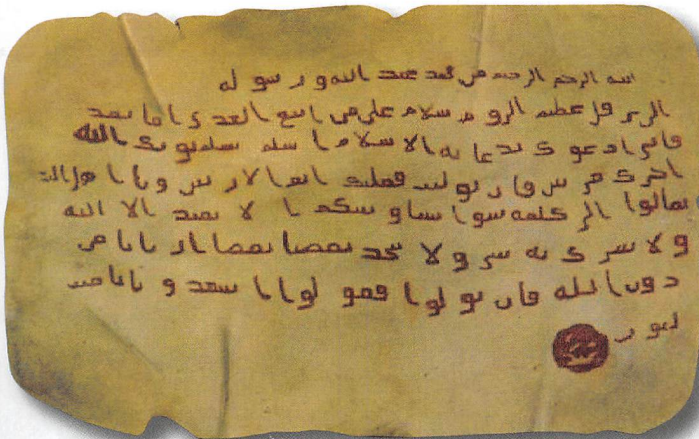 بسم الله الرحمن الرحيم من محمد عبد الله ورسوله
الى هرقل عظيم الروم سلام على من اتبع الهدى اما بعد
فانى ادعوك بدعاية الاسلام اسلم تسلم يوتك الله
اجرك مرتين فان توليت فعليك اثم الاريسين ويا اهل
تعالوا الى كلمة سوا بيننا وبينكم الا نعبد الا الله
ولا نشرك به شيا ولا يتخذ بعضنا بعضا اربابا من
دون الله فان تولوا فقولوا اشهدوا بانا مسلـ
ـمون